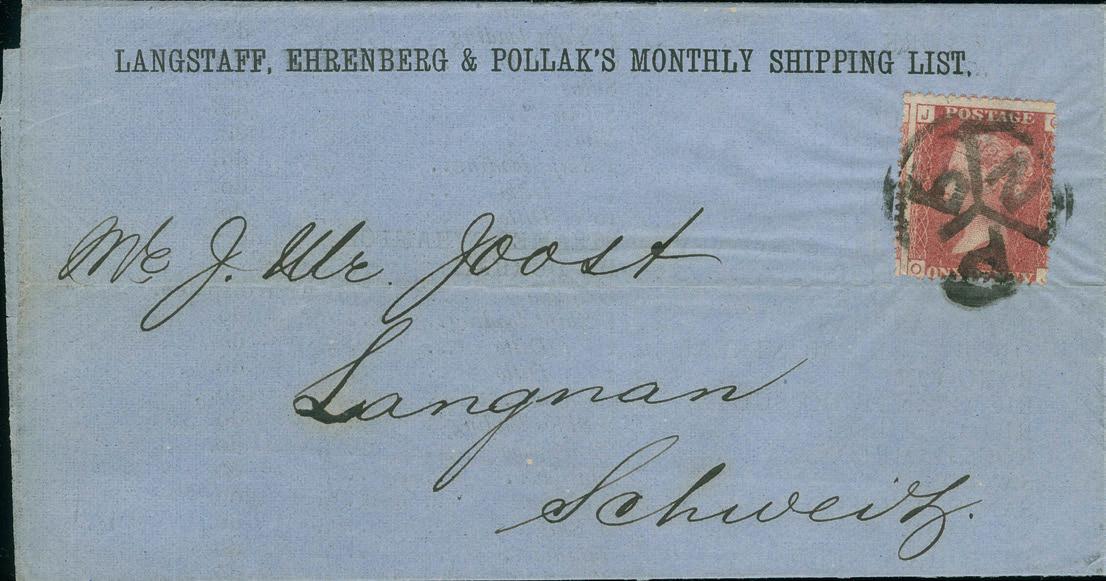 LANGSTAFF, EHRENBERG & POLLAK'S MONTHLY SHIPPING LIST.
J POSTAGE
O ONE PENNY J
Mr J. Ulr. Joost
Langnan
Schweitz.